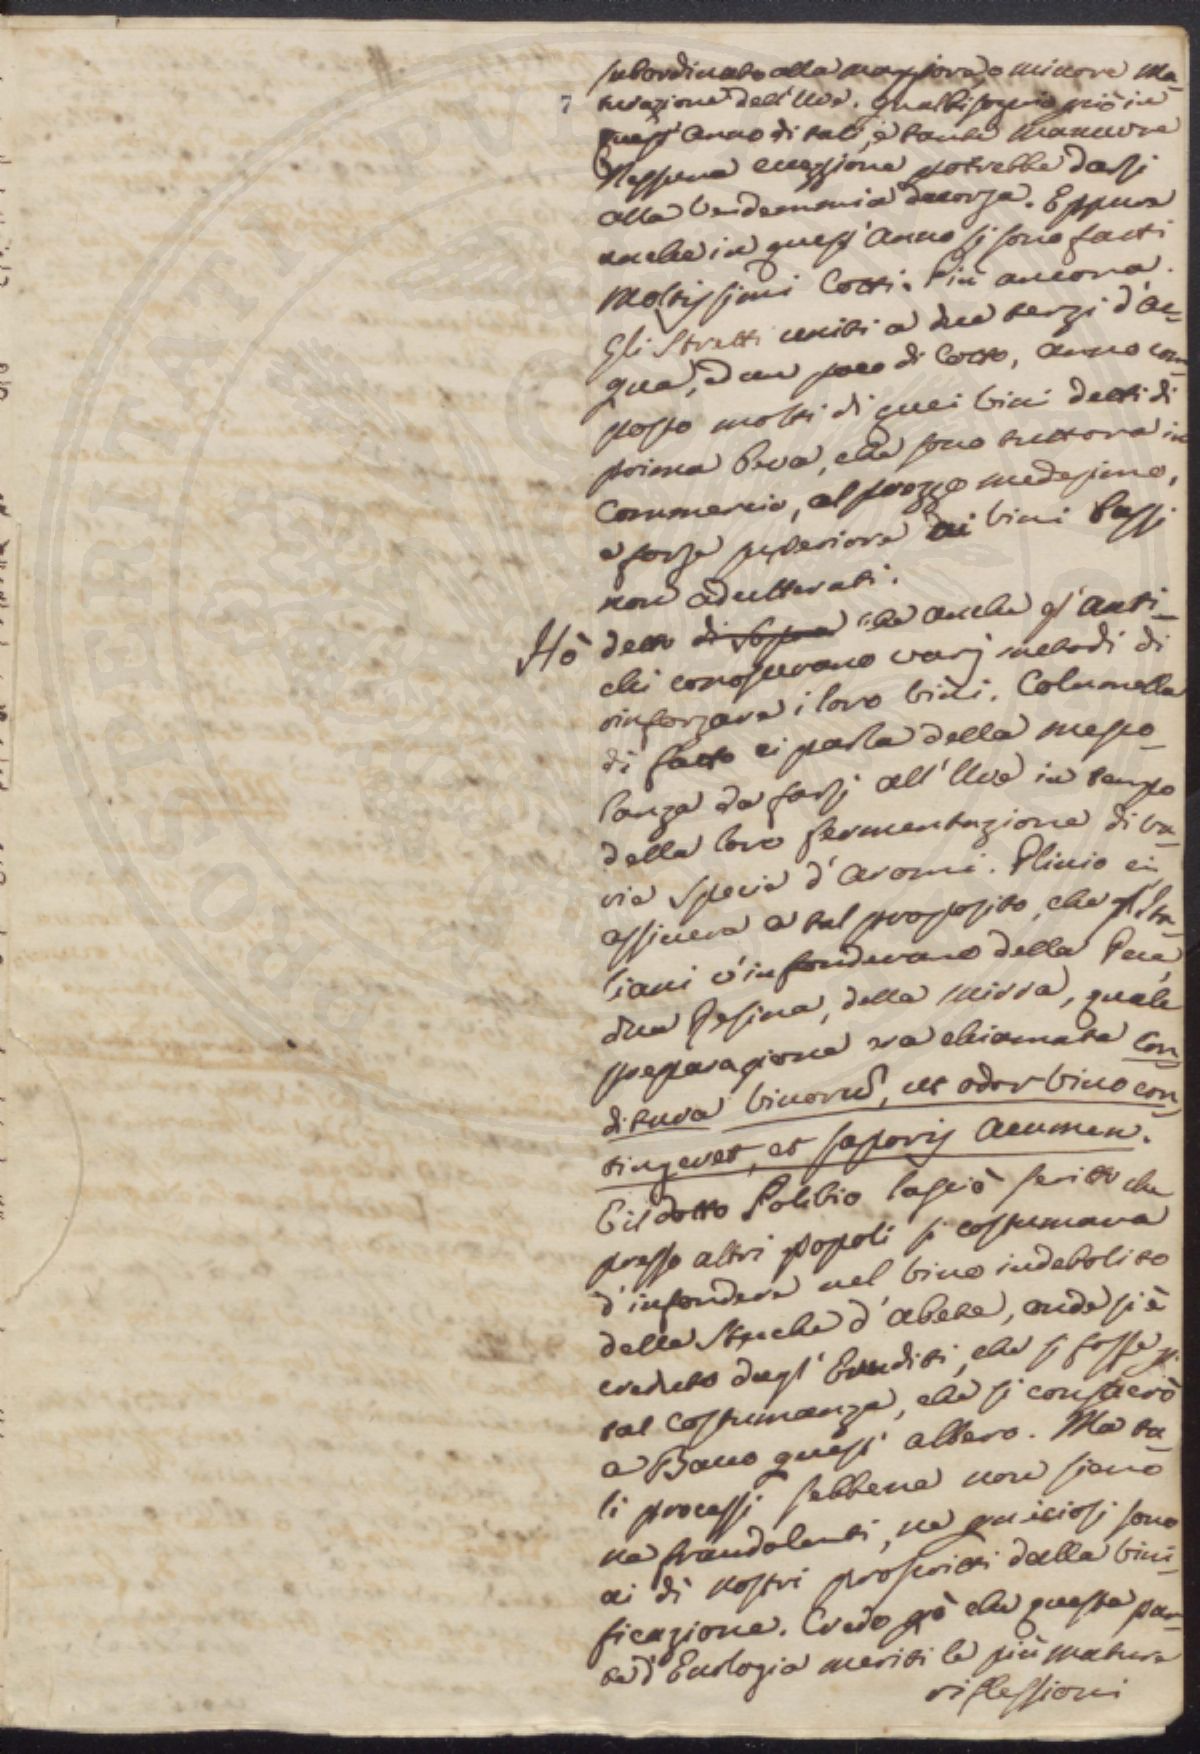 subordinato alla maggiore, o minore ma-
7 turazione dell'Uve. Qual bisogno più in
quest'anno di tali, e tante manuvre
Nessuna eccezione potrebbe darsi
alla Vendemmia decorsa. Eppure
anche in quest'Anno si sono fatti
Moltissimi Cotti. Più ancora.
Gli Stretti uniti a due terzi d'ac-
qua, ed un poco di Cotto, anno com-
posto molti di quei Vini detti di
prima Beva, che sono tuttora in
Commercio, al prezzo medesimo,
e forse superiore ai Vini Bassi
non adulterati.
Hò detto di sopra che anche gl'anti-
chi conoscevano varj metodi di
rinforzare i loro Vini. Columella
di fatto ci parla della mesco-
lanza da farsi all'Uve in tempo
della loro fermentazione di va-
rie Specie d'Aromi. Plinio ci
assicura a tal proposito, che gl'Ita-
liani v'infondevano della Pece,
dua Resina, della mirra, quale
preparazione era chiamata Con-
ditura Vinorum, ut odor Vino con-
tingeret, et saporis acumen.
Il dotto Polibio lasciò scritto che
presso altri popoli si costumava
d'infondere nel Vino indebolito
delle Stuche d'abete, onde si è
creduto dagl'Eruditi, che si fosse p.
tal costumanza, che si consacrò
a Bacco quest'albero. Ma ta-
li processi sebbene non siano
ne fraudolenti, ne perniciosi sono
ai dì nostri proscritti dalla Vini-
ficazione. Credo però che questa par-
te d'Enologia meriti le più mature
riflessioni